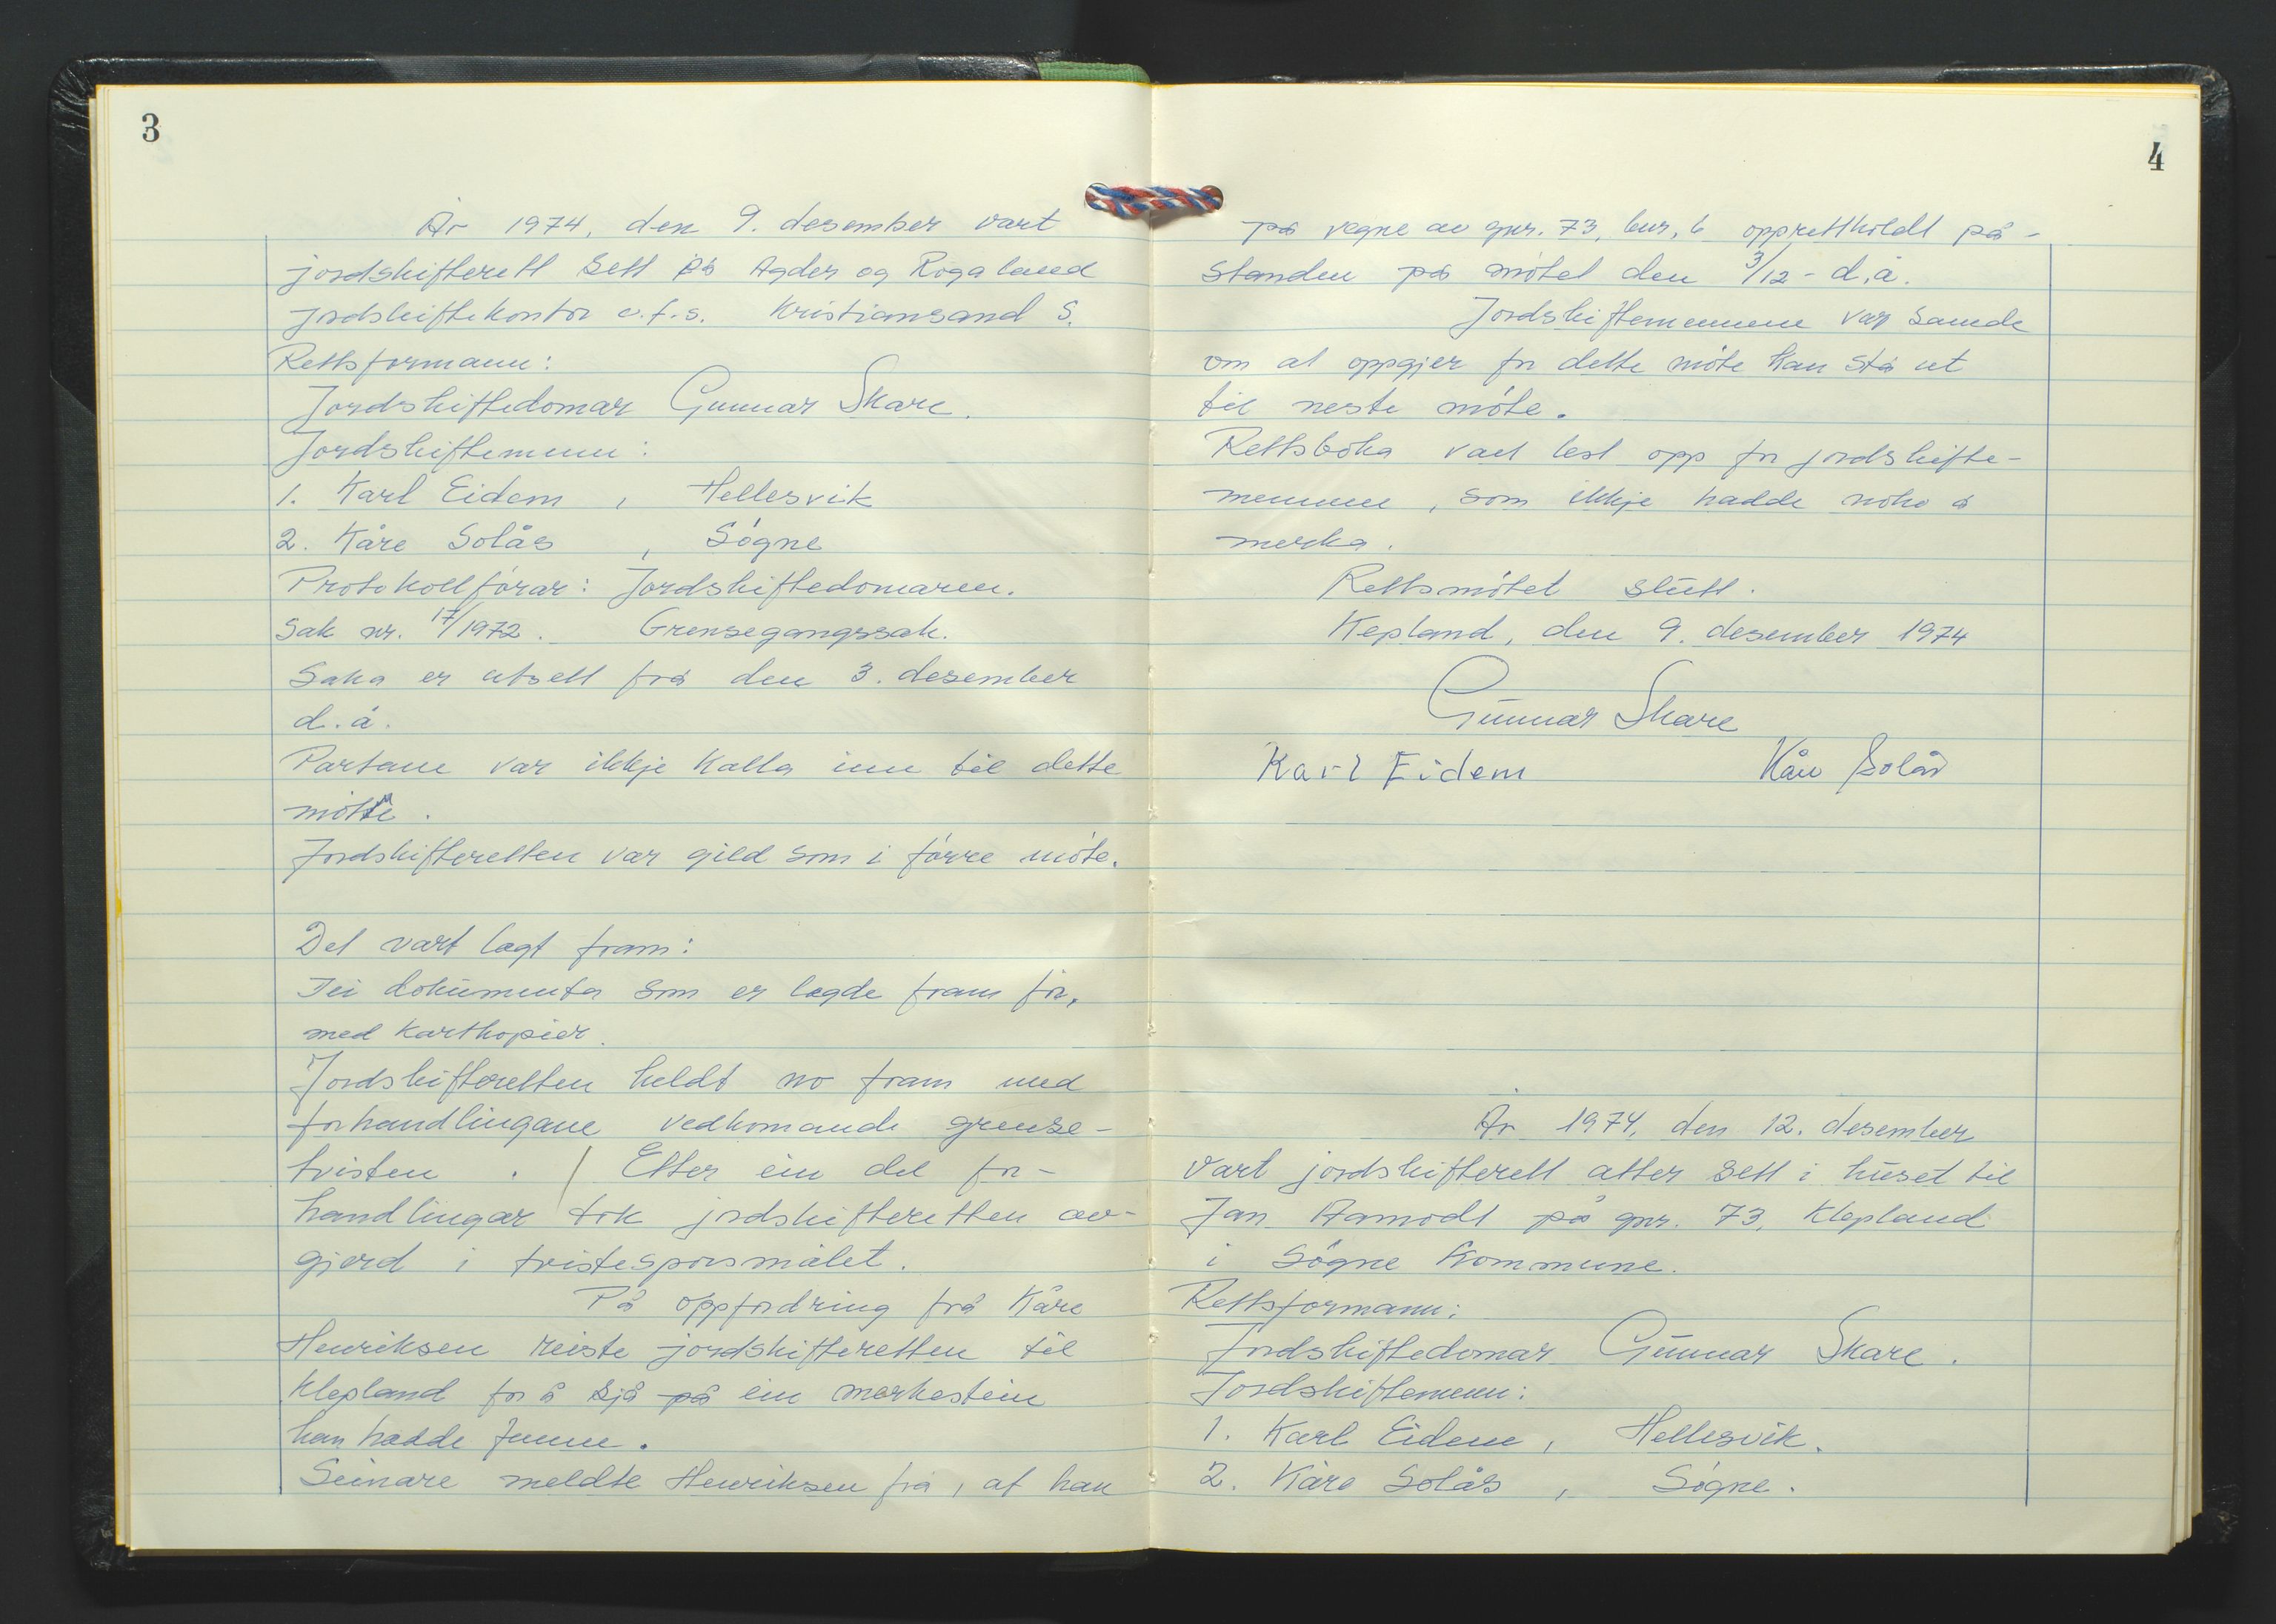 3
År 1974, den 9. desember vart
jordskifterett sett på Agder og Rogaland
jordskiftekontor v.f.s. Kristiansand S.
Rettsformann:
Jordskiftedomar Gunnar Skare.
Jordskiftemenn:
1. Karl Eidem, Hellesvik
2. Kåre Solås, Søgne
Protokollførar: Jordskiftedomaren.
Sak nr. 17/1972. Grensegangssak.
Saka er utsett frå den 3. desember
d.å.
Partane var ikkje kalla inn til dette
møte.
Jordskifteretten var gild som i førre møte.
Det vart lagt fram:
Dei dokumenta som er lagde fram før,
med kartkopier.
Jordskifteretten heldt no fram med
forhandlingane vedkomande grense-
tvisten. / Etter ein del for-
handlingar tok jordskifteretten av-
gjerd i tvistespørsmålet.
På oppfordring frå Kåre
Henriksen reiste jordskifteretten til
Klepland for å sjå på ein merkestein
han hadde funne.
Seinare meldte Henriksen frå, at han
4
på vegne av gnr. 73, bnr. 6 opprettholdt på-
standen på møtet den 3/12 - d.å.
Jordskiftemennene var samde
om at oppgjer for dette møte kan stå ut
til neste møte.
Rettsboka vart lest opp for jordskifte-
mennene, som ikkje hadde noko å
merka.
Rettsmøtet slutt.
Klepland, den 9. desember 1974
Gunnar Skare
Karl Eidem Kåre Solås
År 1974, den 12. desember
vart jordskifterett atter sett i huset til
Jan Aamodt på gnr. 73, Klepland
i Søgne kommune.
Rettsformann:
Jordskiftedomar Gunnar Skare.
Jordskiftemenn:
1. Karl Eidem, Hellesvik.
2. Kåre Solås, Søgne.